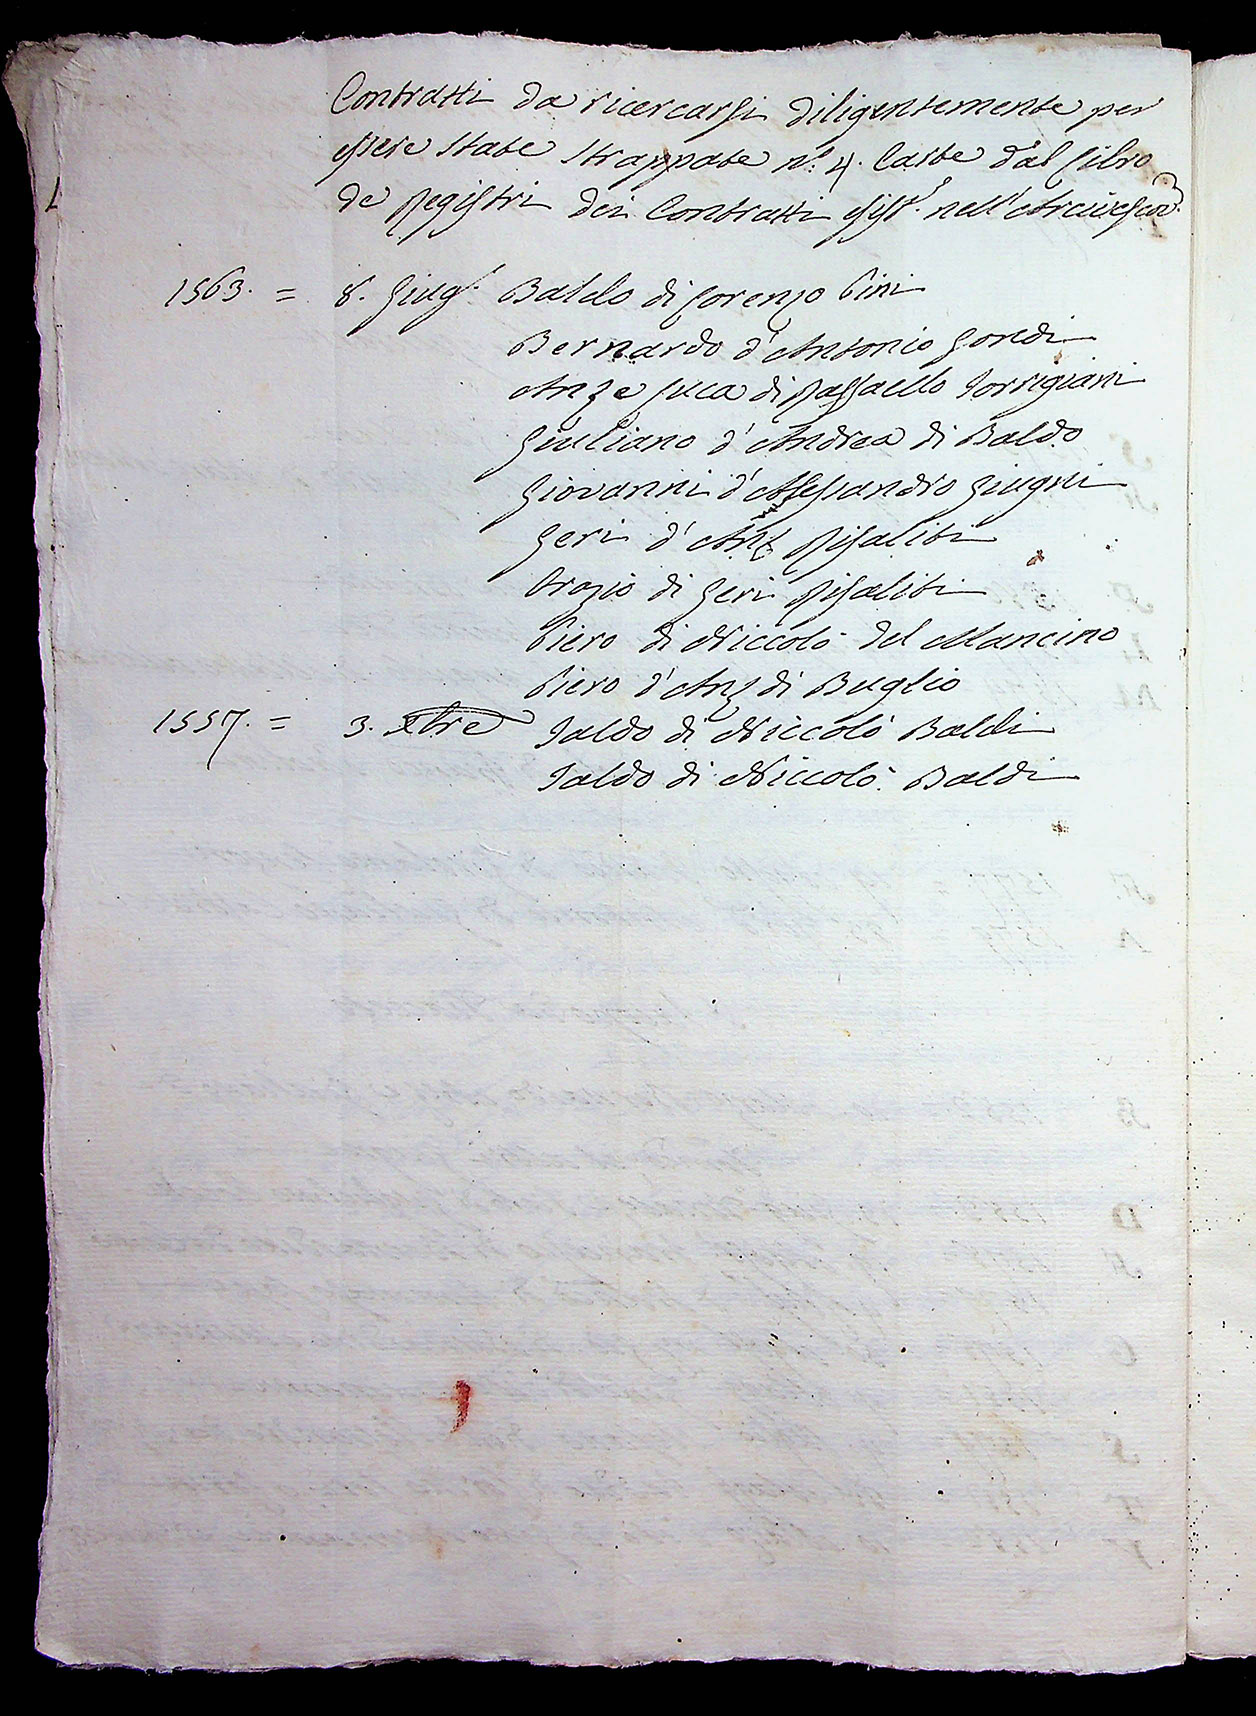 Contratti da ricercarsi diligentemente per
essere state strappate n.º 4. Carte dal Libro
de Registri dei Contratti esist.ᵗ nell'Arcivescov.º
1563. = 8. Giug.º Baldo di Lorenzo Pini
Bernardo d'Antonio Gondi
Anz e Luca di Raffaello Torrigiani
Giuliano d'Andrea di Baldo
Giovanni d'Alessandro Giugni
Geri d'Anz Risaliti
Orazio di Geri Risaliti
Piero di Niccolò del Mancino
Piero d'Anz di Buglio
1557. = 3. Xbre Taldo di Niccolò Baldi
Taldo di Niccolò Baldi